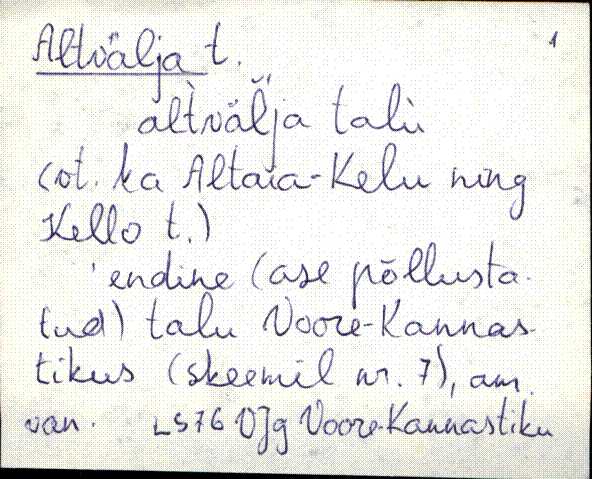 Altvälja t. 1
al̀tväl̆ja talù
(vt. ka Altaia-Kelu ning
Kello t.)
'endine (ase põllusta-
tud) talu Voore-Kannas-
tikus (skeemil nr. 7), am.
van. LS76 VJg Voore-Kannastiku